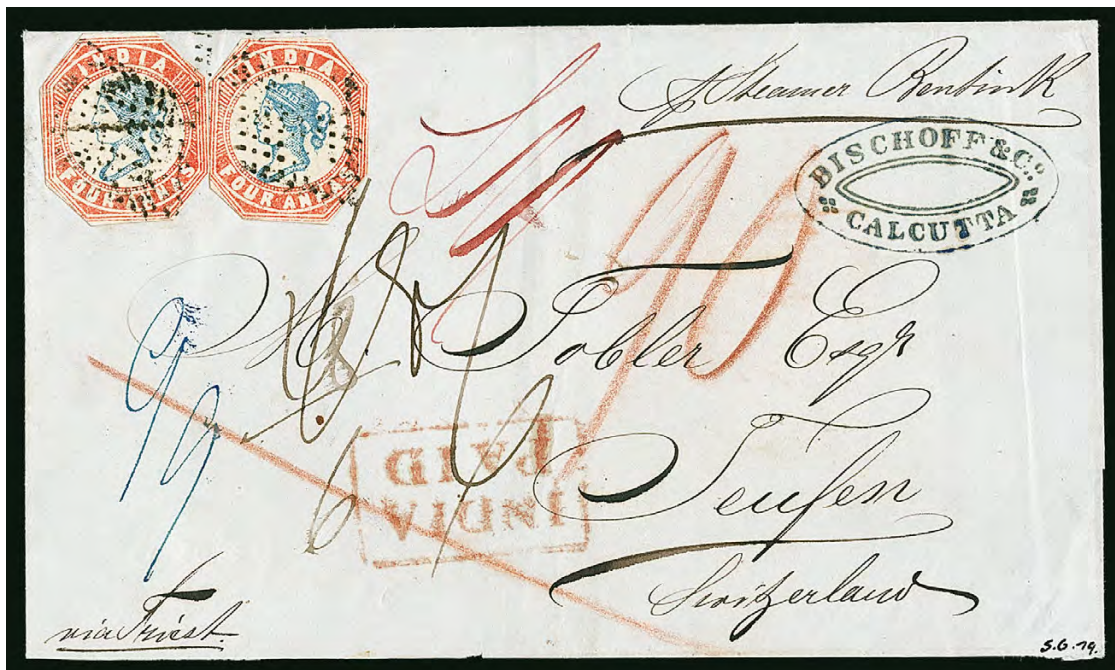 INDIA
FOUR ANNAS
INDIA
FOUR ANNAS
p Steamer Bentink
BISCHOFF & Co.
CALCUTTA
90
Tobler Esqr
INDIA
PAID
Teufen
Switzerland
via Triest
5.6.79.